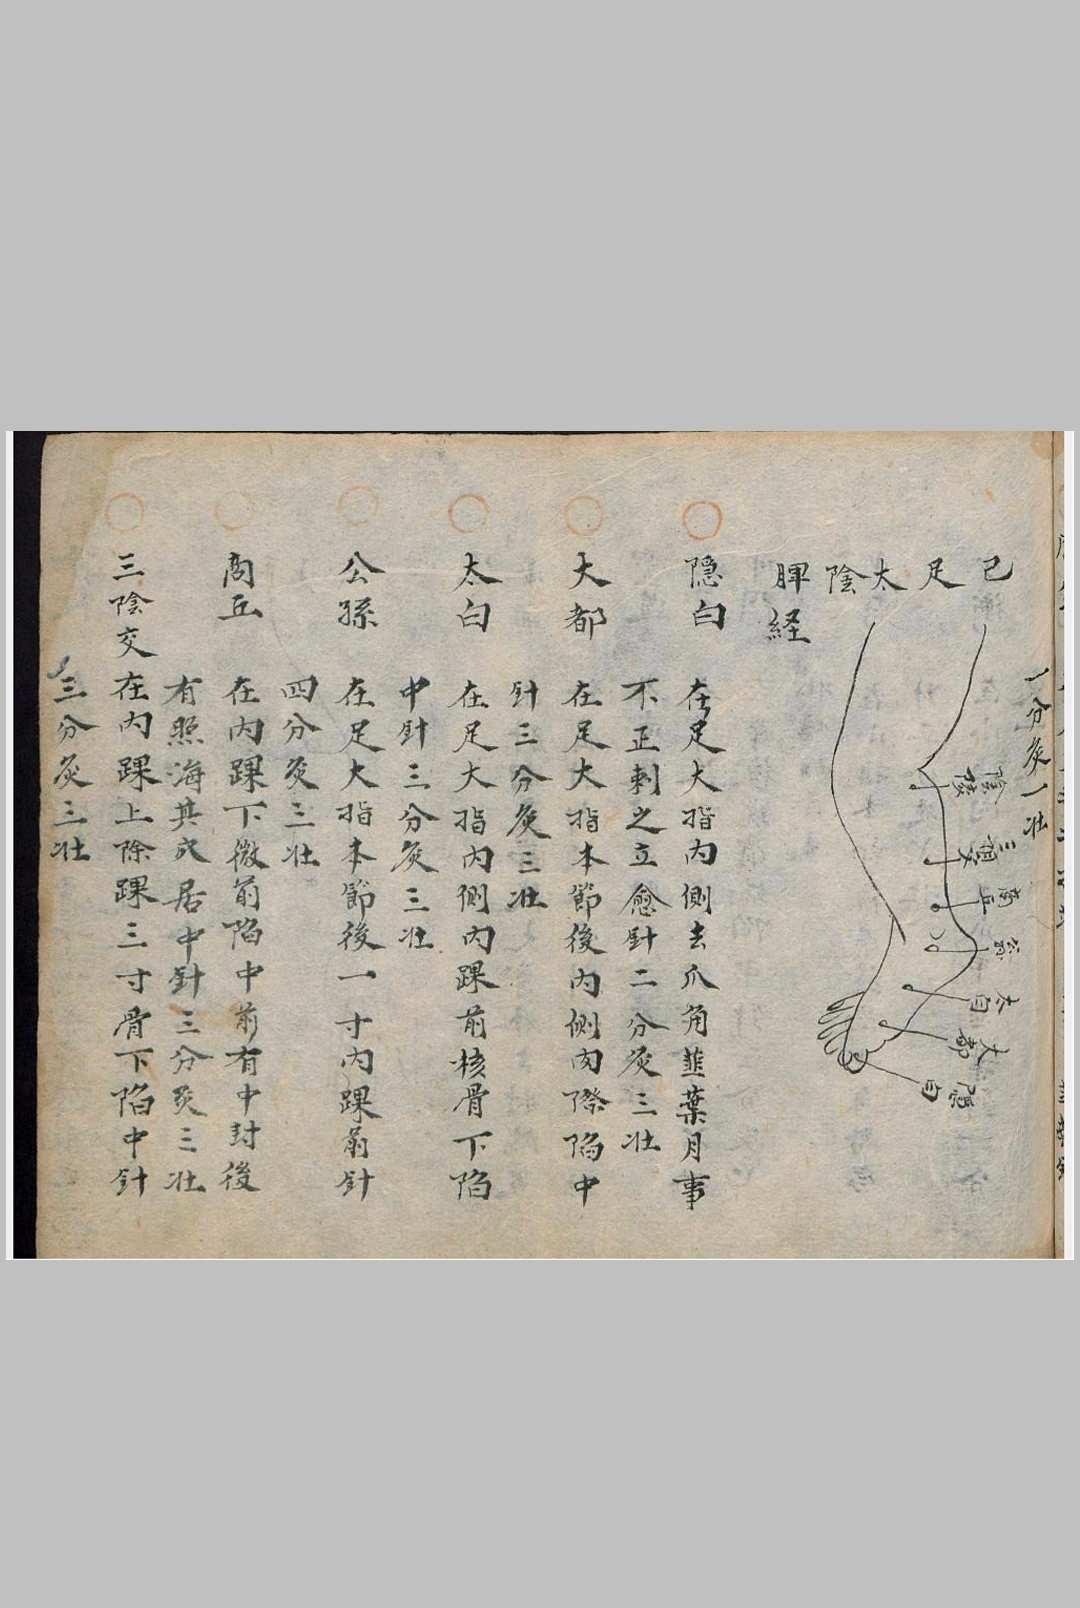 一分灸一壮
己足太陰
脾経
陰陵
三陰交
商丘
公孫
太白
大都
隠白
隠白 在足大指内側去爪角韮葉月事
不正刺之立愈針二分灸三壮
大都 在足大指本節後内側内際陥中
針三分灸三壮
太白 在足大指内側内踝前核骨下陥
中針三分灸三壮
公孫 在足大指本節後一寸内踝前針
四分灸三壮
商丘 在内踝下微前陥中前有中封後
有照海其穴居中針三分灸三壮
三陰交 在内踝上除踝三寸骨下陥中針
三分灸三壮